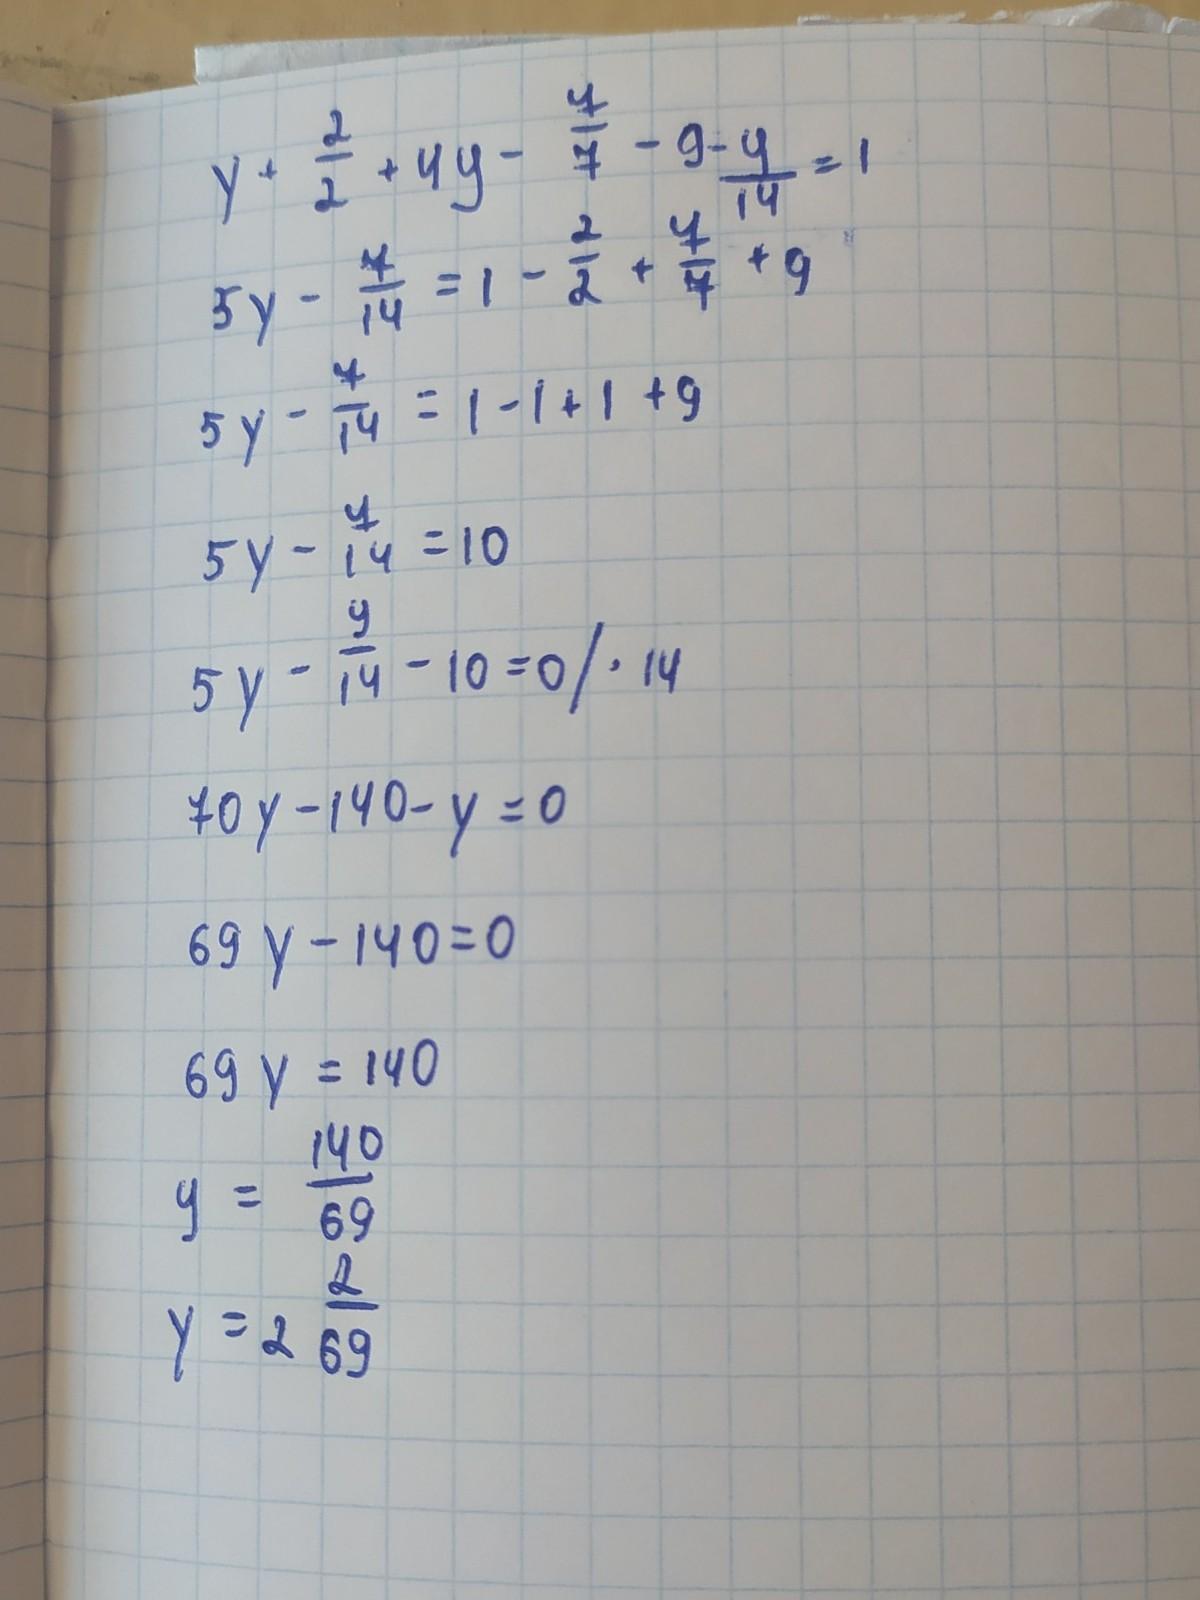 y + 2/2 + 4y - 7/7 - 9 - y/14 = 1
5y - 7/14 = 1 - 2/2 + 7/7 + 9
5y - 7/14 = 1 - 1 + 1 + 9
5y - y/14 = 10
5y - y/14 - 10 = 0 / · 14
70y - 140 - y = 0
69y - 140 = 0
69y = 140
y = 140/69
y = 2 2/69